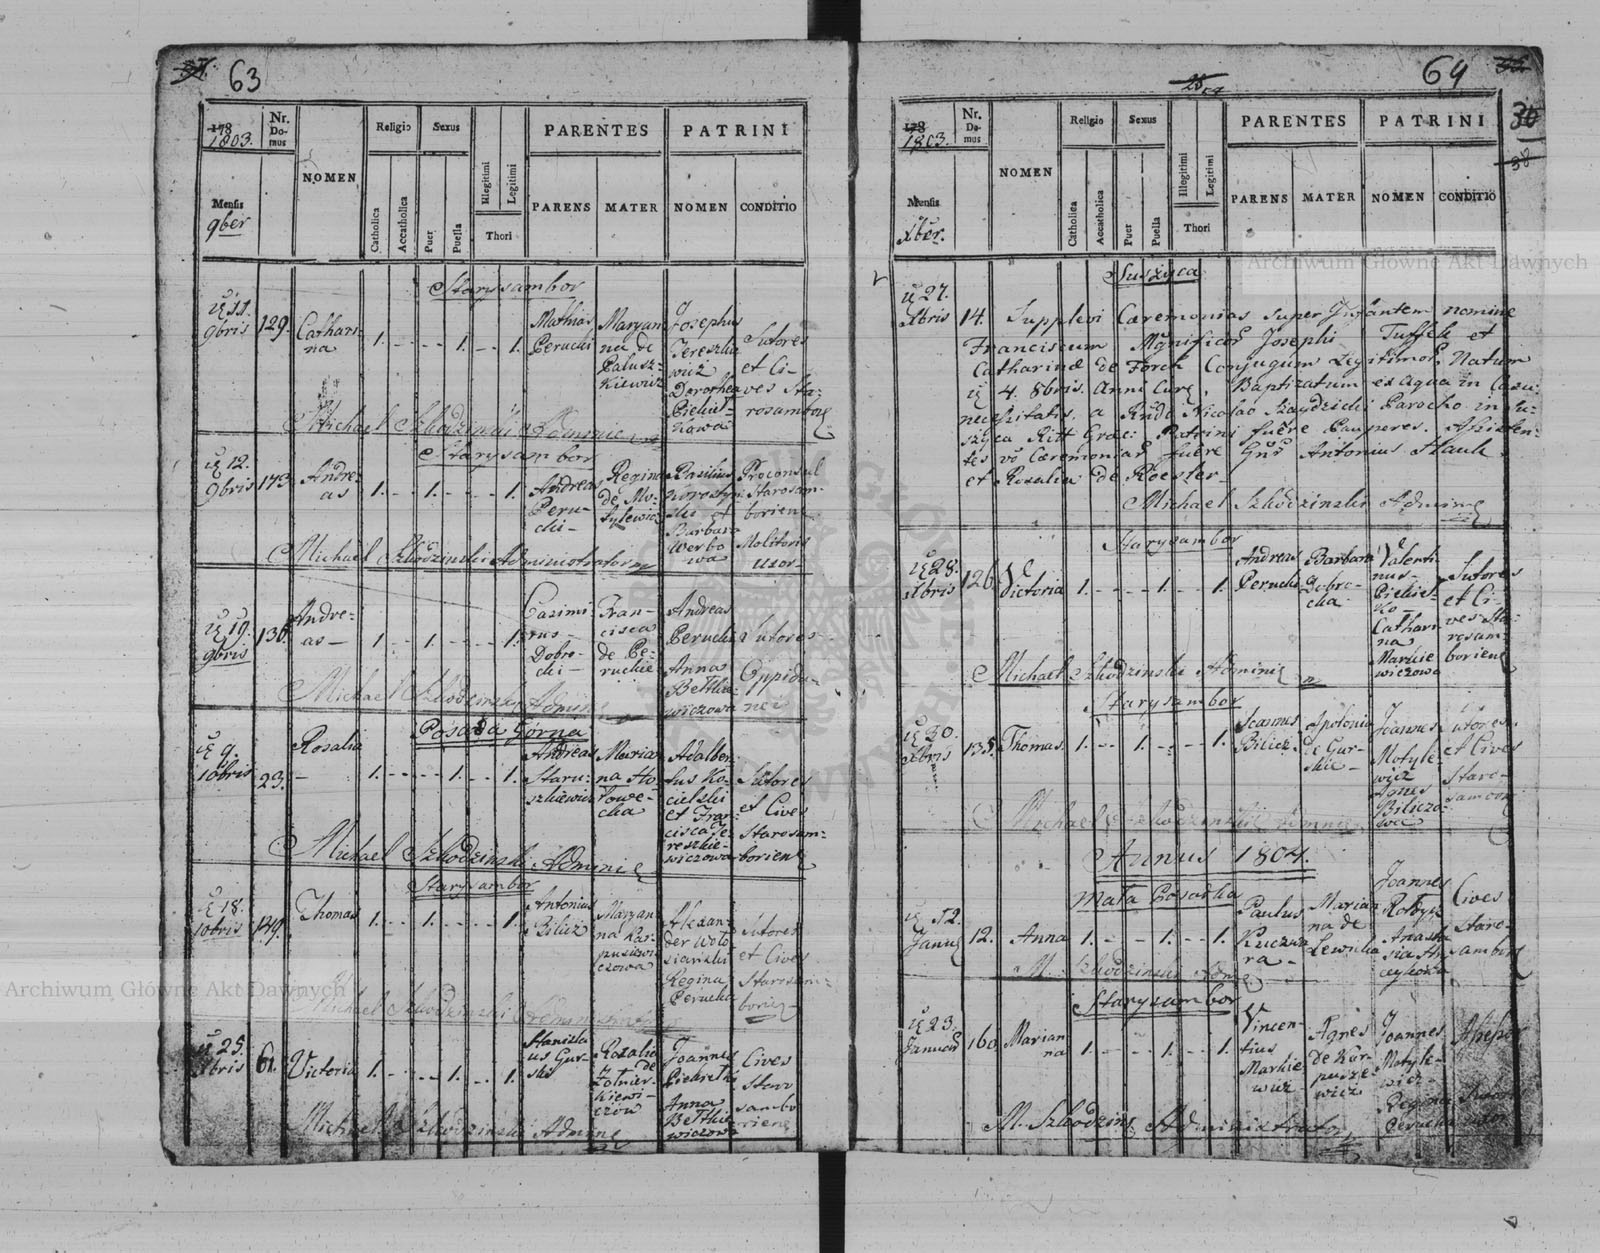 63
1803.
Nr. Domus
NOMEN
Religio
Sexus
PARENTES
PATRINI
Mensis
9ber
Catholica
Accatholica
Puer
Puella
Illegitimi
Legitimi
Thori
PARENS
MATER
NOMEN
CONDITIO
Starysambor
11.
9bris
129.
Cathari-
na
1. 1. 1.
Mathias
Perucki
Maryan
na de
Palusz-
kiewicz
Josephus
Tereszkie
wicz
Dorothea
Piekiel-
kowa
Sutores
et Ci-
ves Sta-
rosambor
Michael Szkodzinski
Starysambor
12.
9bris
173
Andre-
as
1. 1. 1.
Andreas
Peru-
cki
Regina
de Mo-
tylewicz
Basilius
et
Barbara
Werbo
wa
Proconsul
Starosam-
boriens
Molitoris
uxor
Michael Szkodzinski Administrator
19.
9bris
136.
Andre-
as
1. 1. 1.
Casimi-
rus
Dobro-
cki
Fran-
cisca
de Pe-
ruckie
Andreas
Perucki
Anna
Betkie-
wiczowa
Sutores
Oppida-
nei
Michael Szkodzinski
Posada Gorna
9.
10bris
23.
Rosalia
1. 1. 1.
Andreas
Staru-
szkiewicz
Maria-
na Ho-
lowe-
cka
Adalber-
tus Ko-
cielski
et Fran-
cisca Te-
reszkie-
wiczowa
Sutores
et Cives
Starosam-
boriens
Michael Szkodzinski Admini
Starysambor
18.
10bris
149.
Thomas
1. 1. 1.
Antonius
Bilicz
Maryan
na Kar-
puszewi-
czowa
Alexan-
der Wolo-
Regina
Perucka
Sutores
et Cives
Starosam-
borien
Michael Szkodzinski
25.
Xbris
61.
Victoria
1. 1. 1.
Stanisla
us Gur-
ski
Rozalia
de
Zolnier-
kiewi-
czow
Joannes
Piekielki
Anna
Betkie
wiczowa
Cives
Staro
sambo
riens
Michael Szkodzinski Admin
64
30
38
1803.
Nr. Domus
NOMEN
Religio
Sexus
PARENTES
PATRINI
Mensis
Xber.
Catholica
Accatholica
Puer
Puella
Illegitimi
Legitimi
Thori
PARENS
MATER
NOMEN
CONDITIO
Suszyca
27.
Xbris
14.
Supplevi Caeremonias super Infantem nomine
Franciscum Mgnificor Josephi Tuffek et
Catharinae de Forck Conjugum Legitimor. Natum
4. 8bris Anni Cur, Baptizatum ex Aqua in Casu
necessitatis a Rndo Nicolao Parocho in Su-
szyca Ritt Graec: Patrini fuere Pauperes. Assisten-
tes Caeremonias fuere Antonius Hauk
et Rozalia de Roester
Michael Szkodzinski Admin
Starysambor
28.
Xbris
126.
Victoria
1. 1. 1.
Andreas
Perucki
Barbara
Dobro-
cka
Valenti-
nus
Piekiel-
ko
Cathari-
na
Markie-
wiczowa
Sutores
et Ci-
ves Sta-
rosam
boriens
Michael Szkodzinski Admini
Starysambor
30.
Xbris
135.
Thomas
1. 1. 1.
Joannes
Bilicz
Apolonia
de Gur-
skie
Joannes
Motyle-
wicz
Agnes
Biliczo-
wa
Sutores
et Cives
Staro-
sambor
Michael Szkodzinski
Annus 1804.
Mala Posadka
12.
Janu
12.
Anna
1. 1. 1.
Paulus
Kuczma-
ra
Marian
na de
Lewicka
Joannes
Anasta
sia
Cives
Staro-
sambor
M. Szkodzinski Adm
Starysambor
23.
Januar
160.
Marian
na
1. 1. 1.
Vincen-
tius
Markie
wicz
Agnes
de Kar-
pusze
wicz
Joannes
Motyle-
wicz
Regina
Perucka
Sutoris
uxor
M. Szkodzins Administrator
Archiwum Główne Akt Dawnych
Archiwum Główne Akt Dawnych